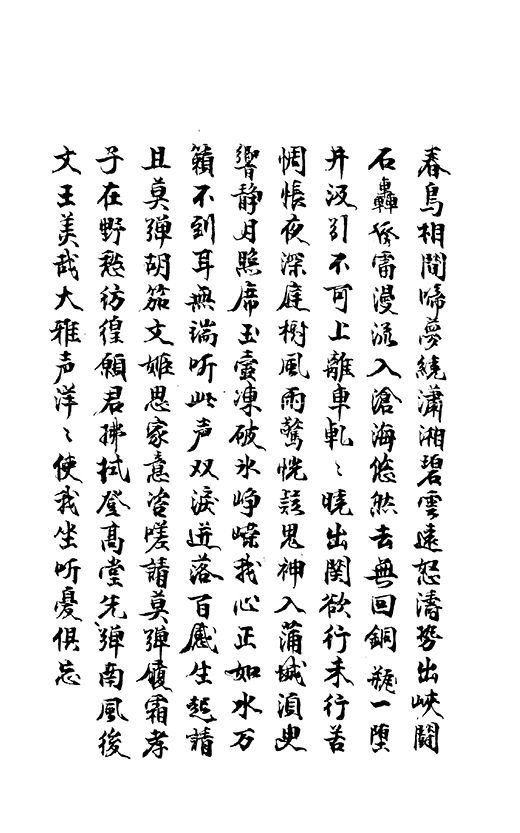 春鳥相間啼夢繞瀟湘碧雲遠怒濤勢出峽鬪
石轟奔雷漫流入滄海悠然去無回銅瓶一墮
井汲引不可上離車軋〻曉出関欲行未行苦
惆悵夜深庭樹風雨驚恍疑鬼神入蒲城須臾
響静月照席玉壺凍破氷崢嶸我心正如水万
籟不到耳無端听此声双淚迸落百感生起請
且莫弾胡笳文姬思家意咨嗟請莫弾履霜孝
子在野愁彷徨願君拂拭登高堂先弾南風後
文王美哉大雅声洋〻使我坐听憂俱忘